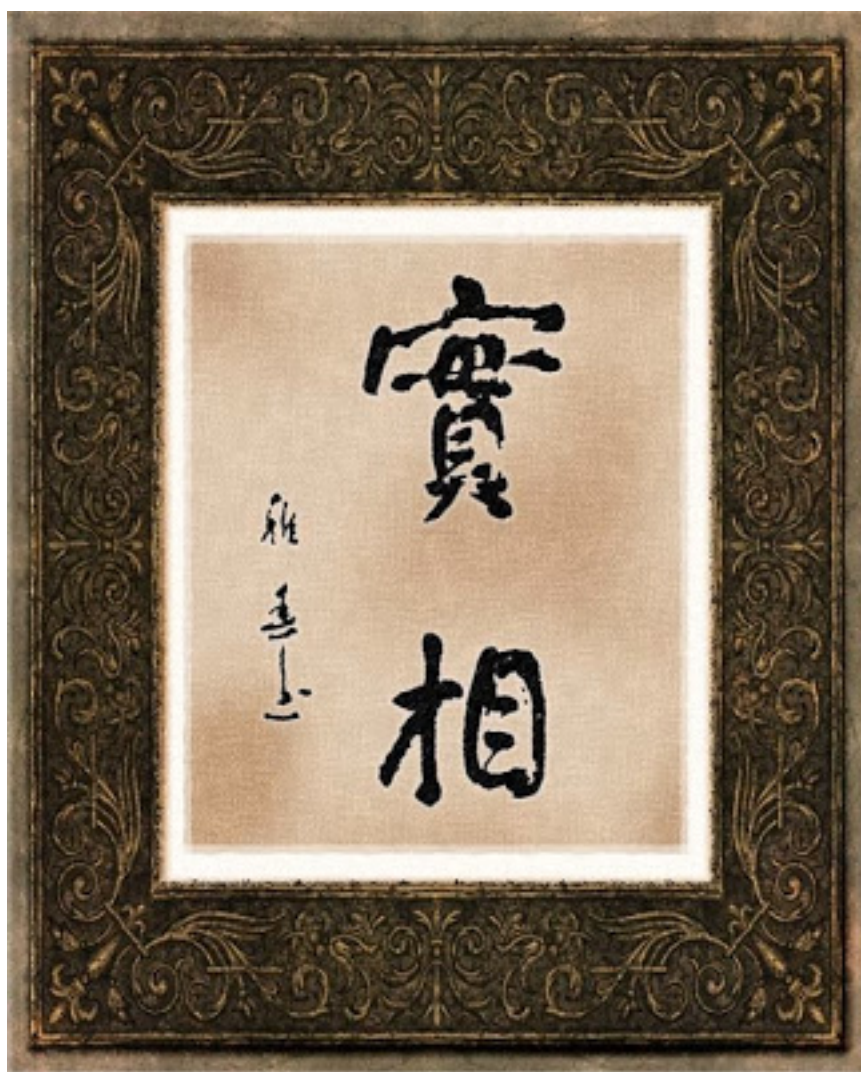 實相
雅春